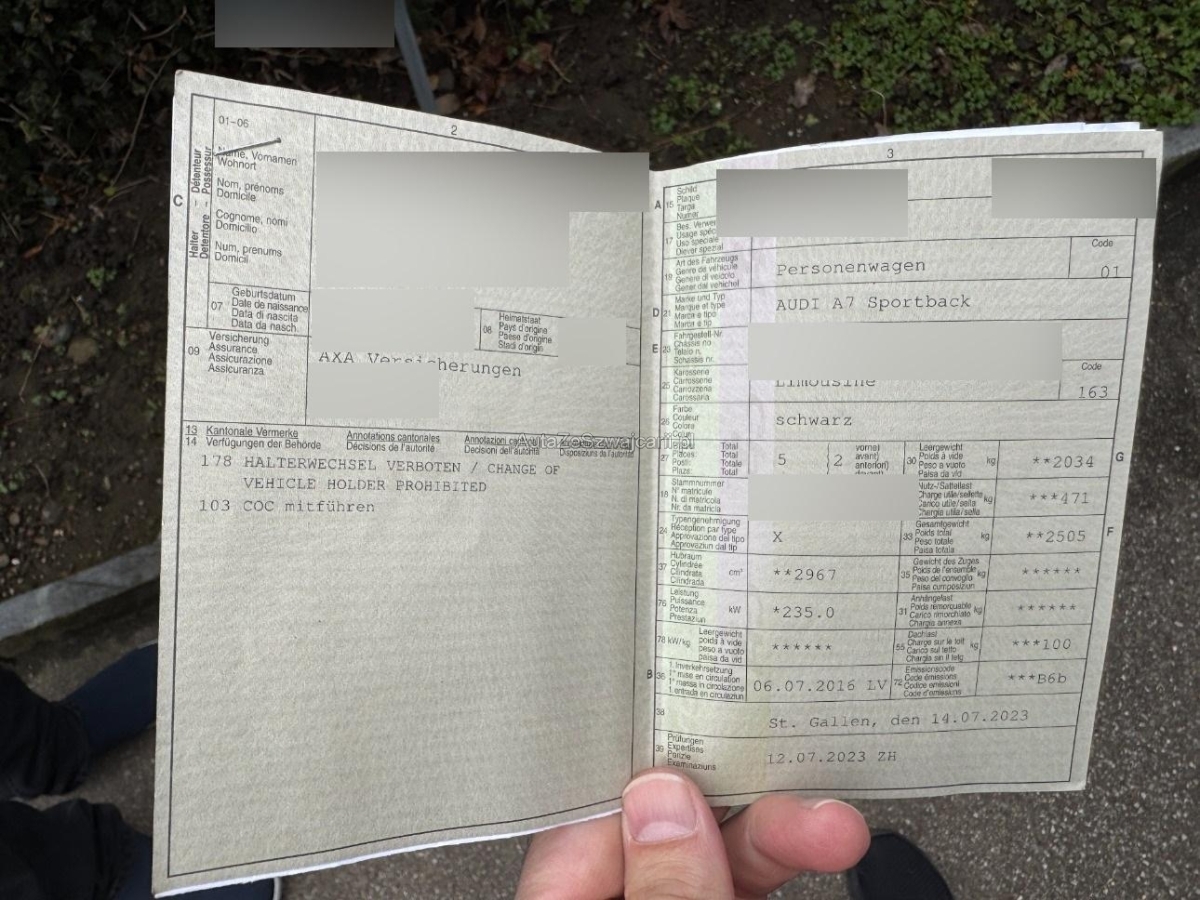 2
01-06
Name, Vornamen
Wohnort
Nom, prénoms
Domicile
Cognome, nomi
Domicilio
Num, prenums
Domicil
C
Halter - Détenteur
Detentore - Possessur
07
Geburtsdatum
Date de naissance
Data di nascita
Data da nasch.
08
Heimatstaat
Pays d'origine
Paese d'origine
Stadi d'origin
09
Versicherung
Assurance
Assicurazione
Assicuranza
AXA Versicherungen
13 Kantonale Vermerke
14 Verfügungen der Behörde
Annotations cantonales
Décisions de l'autorité
Annotazioni
Decisioni dell'autorità
Disposiziuns da l'autoritad
178 HALTERWECHSEL VERBOTEN / CHANGE OF
VEHICLE HOLDER PROHIBITED
103 COC mitführen
3
A
15
Schild
Plaque
Targa
Numer
17
Bes. Verwe
Usage spéc
Uso speciale
Diever spezial
18
Art des Fahrzeugs
Genre de véhicule
Genere di veicolo
Gener dal vehichel
Personenwagen
Code
01
D
21
Marke und Typ
Marque et type
Marca e tipo
Marca e tip
AUDI A7 Sportback
E
23
Fahrgestell-Nr.
Châssis no
Telaio n.
Schassis nr.
25
Karosserie
Carrosserie
Carrozzeria
Carossaria
Limousine
Code
163
26
Farbe
Couleur
Colore
Colur
schwarz
27
Plätze: Total
Places: Total
Posti: Totale
Plazs: Total
5
2
vorne)
avant)
anteriori)
davant)
30
Leergewicht
Poids à vide
Peso a vuoto
Paisa da vid
kg
**2034
G
18
Stammnummer
N° matricule
N. di matricola
Nr. da matricla
Nutz-/Sattellast
Charge utile/sellette
Carico utile/sella
Chargia utila/sella
kg
***471
24
Typengenehmigung
Réception par type
Approvazione del tipo
Approvaziun dal tip
X
33
Gesamtgewicht
Poids total
Peso totale
Paisa totala
kg
**2505
F
37
Hubraum
Cylindrée
Cilindrata
Cilindrada
cm³
**2967
35
Gewicht des Zuges
Poids de l'ensemble
Peso del convoglio
Paisa cumposiziun
kg
******
76
Leistung
Puissance
Potenza
Prestaziun
kW
*235.0
31
Anhängelast
Poids remorquable
Carico rimorchiato
Chargia annexa
kg
******
78 kW/kg
Leergewicht
poids à vide
peso a vuoto
paisa da vid
******
55
Dachlast
Charge sur le toit
Carico sul tetto
Chargia sin il tetg
kg
***100
B
36
1. Inverkehrsetzung
1re mise en circulation
1a messa in circolazione
1. entrada en circulaziun
06.07.2016 LV
72
Emissionscode
Code émissions
Codice emissioni
Code d'emissiuns
***B6b
38
St. Gallen, den 14.07.2023
39
Prüfungen
Expertises
Perizie
Examinaziuns
12.07.2023 ZH